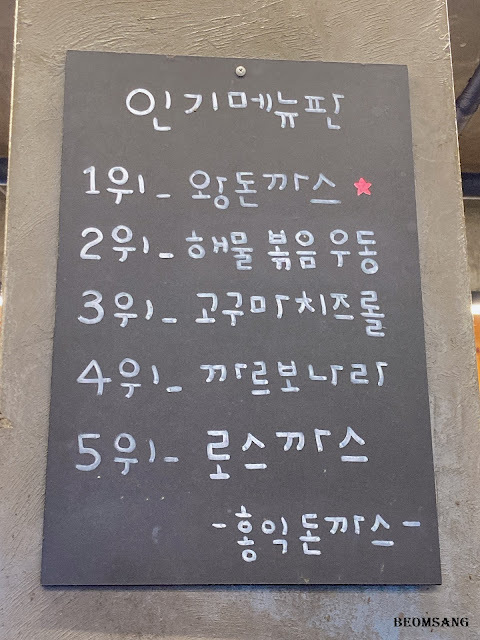 인기메뉴판
1위- 왕돈까스
2위- 해물볶음우동
3위- 고구마치즈롤
4위- 까르보나라
5위- 로스까스
-홍익돈까스-
BEOMSANG